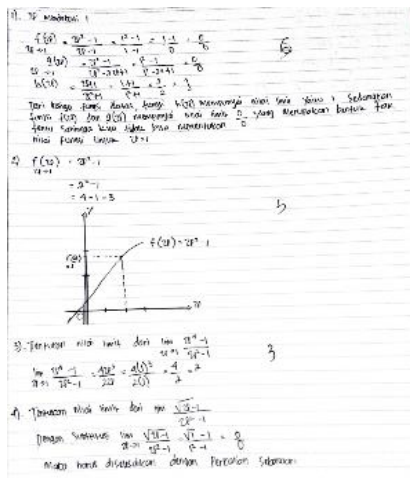 1). x mendekati 1
f(x) = x² - 1 / x - 1 = 1² - 1 / 1 - 1 = 1 - 1 / 0 = 0/0
x → 1
g(x) = x² - 1 / x² - 2x + 1 = 1² - 1 / 1² - 2 + 1 = 0/0
h(x) = x + 1 / x² + 1 = 1 + 1 / 1² + 1 = 2/2 = 1
Dari ketiga fungsi diatas, fungsi h(x) mempunyai nilai limit yaitu 1 Sedangkan
fungsi f(x) dan g(x) mempunyai nilai limit 0/0 yang merupakan bentuk tak
tentu sehingga kita tidak bisa menentukan
nilai fungsi untuk x = 1
2) f(x) = x² - 1
x → 1
= 2² - 1
= 4 - 1 = 3
5
y
f(x) = x² - 1
x
3). Tentukan nilai limit dari lim x → 1 x⁴ - 1 / x² - 1
3
lim x → 1 x⁴ - 1 / x² - 1 = 4x³ / 2x = 4(1)³ / 2(1) = 4/2 = 2
4). Tentukan nilai limit dari lim √x - 1 / x² - 1
Dengan Substitusi lim x → 1 √x - 1 / x² - 1 = √1 - 1 / 1² - 1 = 0/0
Maka harus diselesaikan dengan Perkalian Sekawan